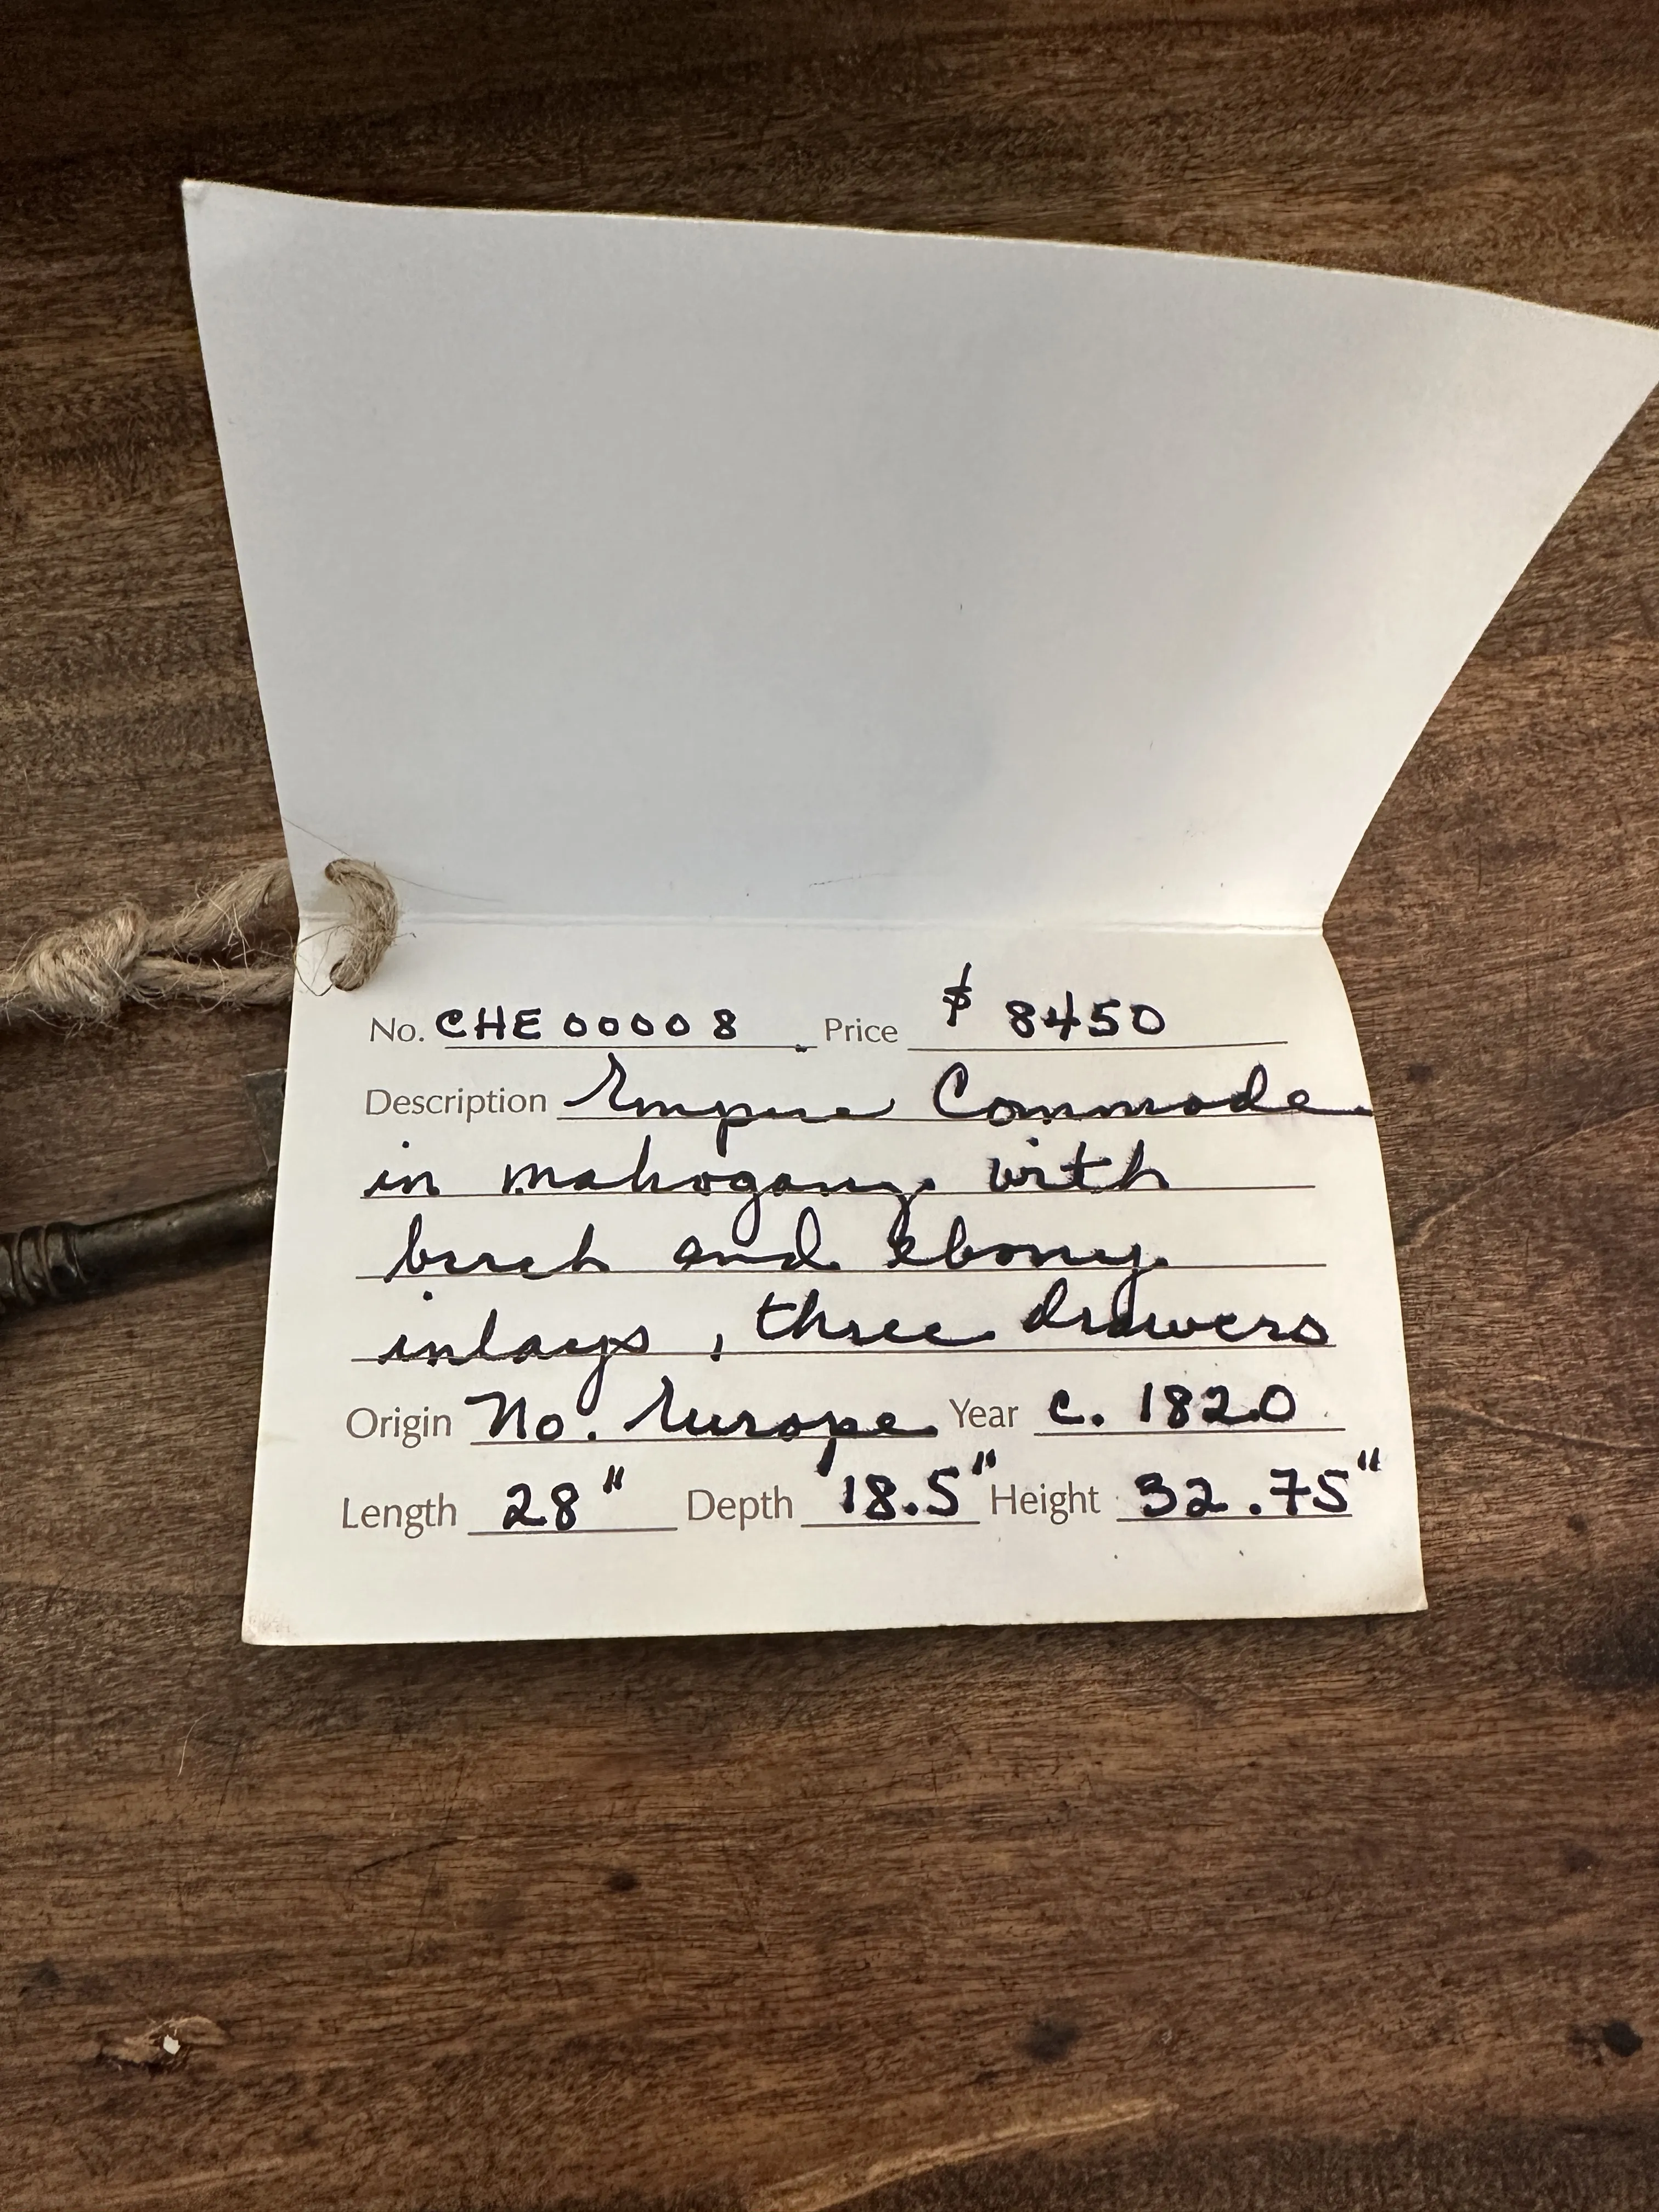 No. CHE 00008 Price $ 8450
Description Empire Commode
in mahogany with
birch and ebony
inlays, three drawers
Origin No. Europe Year c. 1820
Length 28" Depth 18.5" Height 32.75"